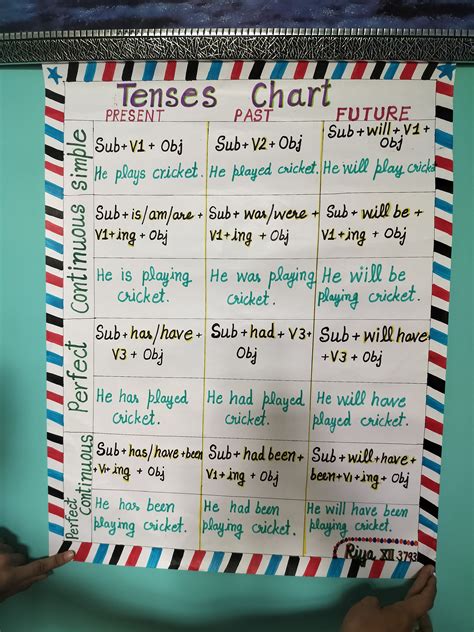 Tenses Chart
PRESENT PAST FUTURE
Simple
Sub+V1+Obj
Sub+V2+Obj
Sub+will+V1+
Obj
He plays cricket.
He played cricket.
He will play cricket.
Continuous
Sub+is/am/are+
V1+ing+Obj
Sub+was/were+
V1+ing+Obj
Sub+will be+
V1+ing+Obj
He is playing
cricket.
He was playing
cricket.
He will be
playing cricket.
Perfect
Sub+has/have+
V3+Obj
Sub+had+V3+
Obj
Sub+will have
+V3+Obj
He has played
cricket.
He had played
cricket.
He will have
played cricket.
Perfect
Continuous
Sub+has/have+been
+V1+ing+Obj
Sub+had been+
V1+ing+Obj
Sub+will+have+
been+V1+ing+Obj
He has been
playing cricket.
He had been
playing cricket.
He will have been
playing cricket.
Riya XII 3793